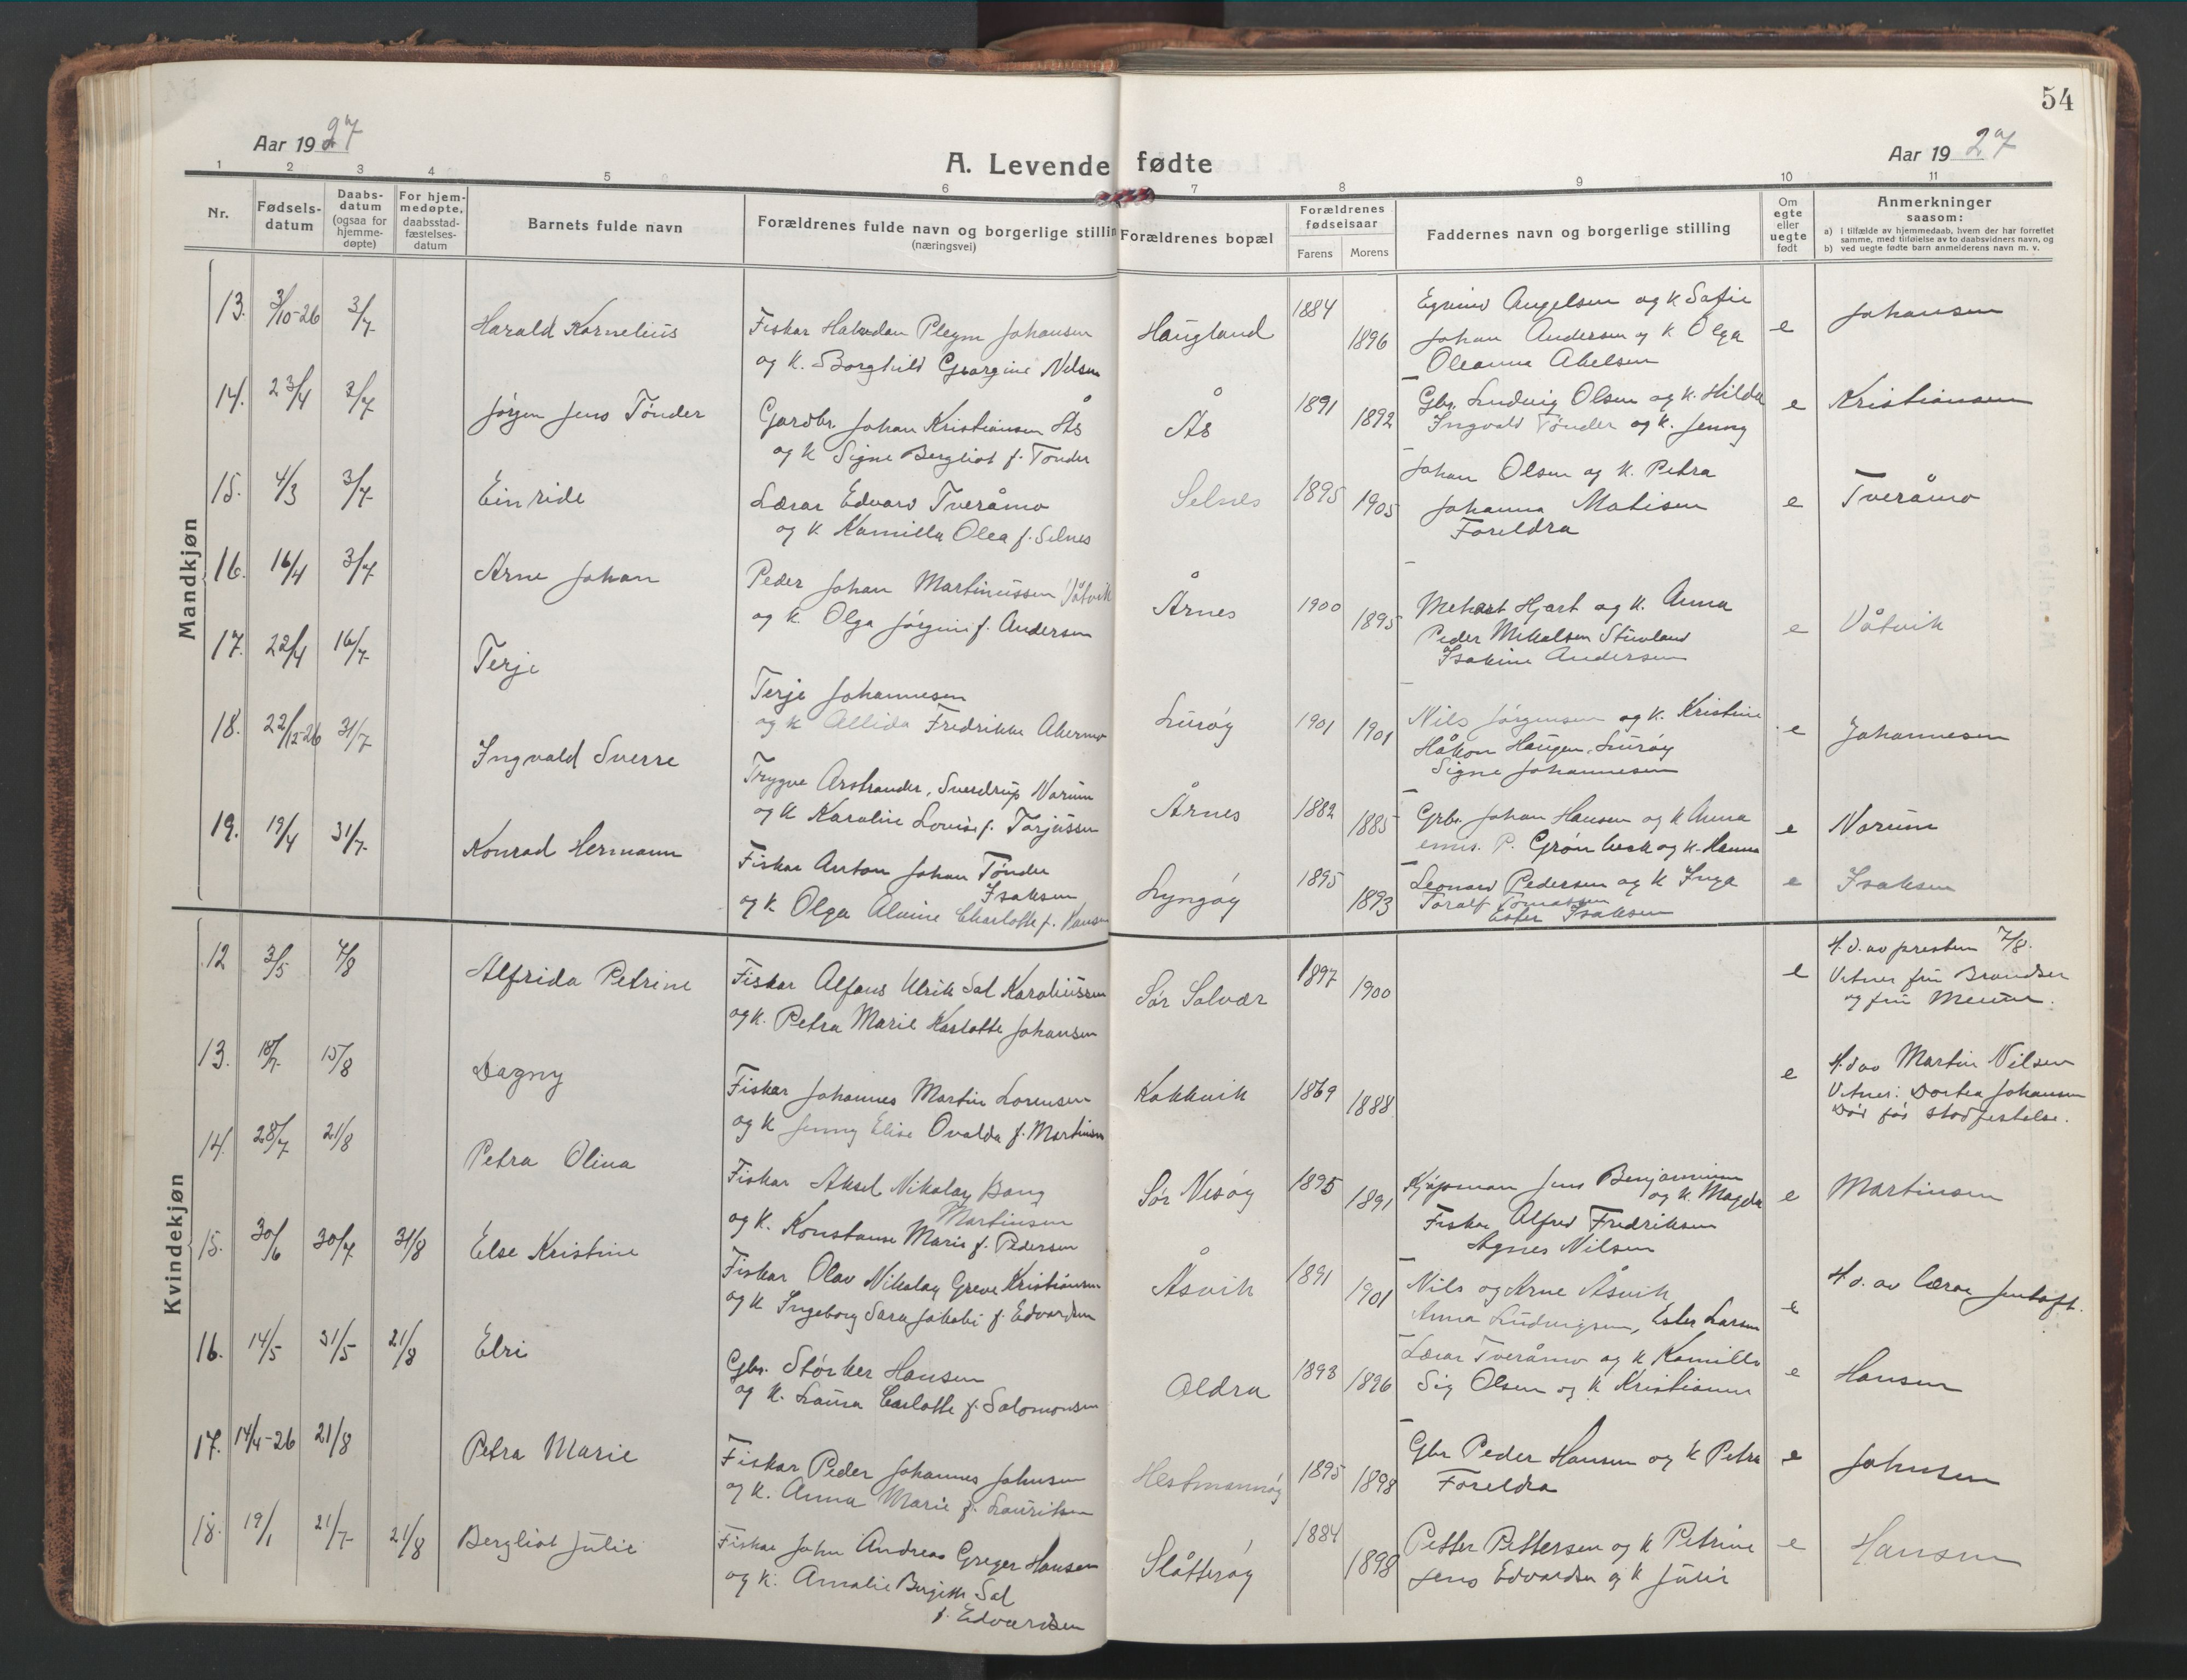 54
Aar 1927
A. Levende fødte
Aar 1927
1 2 3 4 5 6 7 8 9 10 11
Nr. Fødsels-datum Daabs-datum (ogsaa for hjemme-døpte) For hjem-medøpte, daabsstad-fæstelses-datum Barnets fulde navn Forældrenes fulde navn og borgerlige stillin (næringsvei) Forældrenes bopæl Forældrenes fødselsaar Farens Morens Faddernes navn og borgerlige stilling Om egte eller uegte født Anmerkninger saasom:
a) i tilfælde av hjemmedaab, hvem der har forrettet samme, med tilføielse av to daabsvidners navn, og
b) ved uegte fødte barn anmelderens navn m. v.
Mandkjøn
13. 3/10-26 3/7 Harald Kornelius Fiskar Halvdan Pleym Johansen Haugland 1884 1896 Johansen
og K. Borghild Georgine Nilsen
Eyvind Angelsen og K Safie
Johan Andersen og K Olga e
Oleanna Abelsen
14. 23/4 3/7 Jørgen Jens Tønder Gardbr. Johan Kristiansen Ås Ås 1891 1892 Kristiansen
og K Signe Bergliot f. Tønder
Gbr. Ludvig Olsen og K. Hilda e
Ingvald Tønder og K. Jenny
15. 4/3 3/7 Einride Lærar Edvard Tveråmo Selnes 1895 1905 Tveråmo
og K Kamilla Olea f. Selnes
Johan Olsen og K. Petra
Johanna Matisen e
Foreldra
16. 16/4 3/7 Arne Johan Peder Johan Martinussen Våtvik Årnes 1900 1895 Våtvik
og K. Olga Jørgine f. Andersen
Hjart og K. Anna
Peder Mikalsen e
Isakine Andersen
17. 22/4 16/7 Terje Terje Johannesen Lurøy 1901 1901 Johannesen
og K Allida Fredrikke
Nils Jørgensen og K. Kristine e
Håkon Haugen, Lurøy
Signe Johannesen
18. 22/12-26 31/7 Ingvald Sverre Trygve Arstrander, Sverdrup Norum Årnes 1882 1885 Norum
og K Karoline Lovise f. Torjussen
Grbr. Johan Hansen og K Anna e
P. Grønbeck og K. Hanna
19. 19/4 31/7 Konrad Hermann Fiskar Anton Johan Tønder Isaksen Lyngøy 1895 1893 Isaksen
og K. Olga Alvine Charlotte f. Hansen
Leonard Pedersen og K Inga e
Toralf Tomassen
Ester Isaksen
Kvindekjøn
12 3/5 7/8 Alfrida Petrine Fiskar Alfons Ulrik Sal Karoliussen Sør Solvær 1897 1900 e
og K. Petra Marie Karlotte Johansen
H.d. av presten 7/8.
Vitner fru Brandser
og fru
13. 15/8 Dagny Fiskar Johannes Martin Lorensen Kokkvik 1869 1888 e
og K Jenny Elise Ovalda f. Martinsen
H.d av Martin Nilsen
Vitner: Dortea Johansen
Død før stadfestelse.
14. 28/7 21/8 Petra Olina Fiskar Aksel Nikolay Bang Martinsen Sør Nesøy 1895 1891 Martinsen
og K. Konstanse Marie f. Pedersen
Kjøpman Jens Benjaminsen
og K. Magda e
Fiskar Alfred Fredriksen
Agnes Nilsen
15. 30/6 30/7 31/8 Else Kristine Fiskar Olav Nikolay Greve Kristiansen Åsvik 1891 1901
og K Ingeborg Sara Jakobi f. Edvardsen
Nils og Arne Åsvik
Anna Ludvigsen, Ester Larsen e
H.d. av lærar Jentoft.
16. 14/5 31/5 21/8 Elri Gbr. Størker Hansen Aldra 1893 1896 Hansen
og K. Laura Carlotte f. Salomonsen
Lærar Tveråmo og K Kamilla e
Sig Olsen og K Kristianna
17. 14/4-26 21/8 Petra Marie Fiskar Peder Johannes Johnsen Hestmannøy 1895 1898 Johnsen
og K. Anna Marie f. Lauritsen
Gbr Peder Hansen og K Petra e
Foreldra
18. 19/1 21/7 21/8 Bergliot Julie Fiskar John Andreas Greger Hansen Slåtterøy 1884 1898 Hansen
og K. Amalie Bergitte Sal
f. Edvardsen
Petter Pettersen og K Petrine e
Jens Edvardsen og K Julie